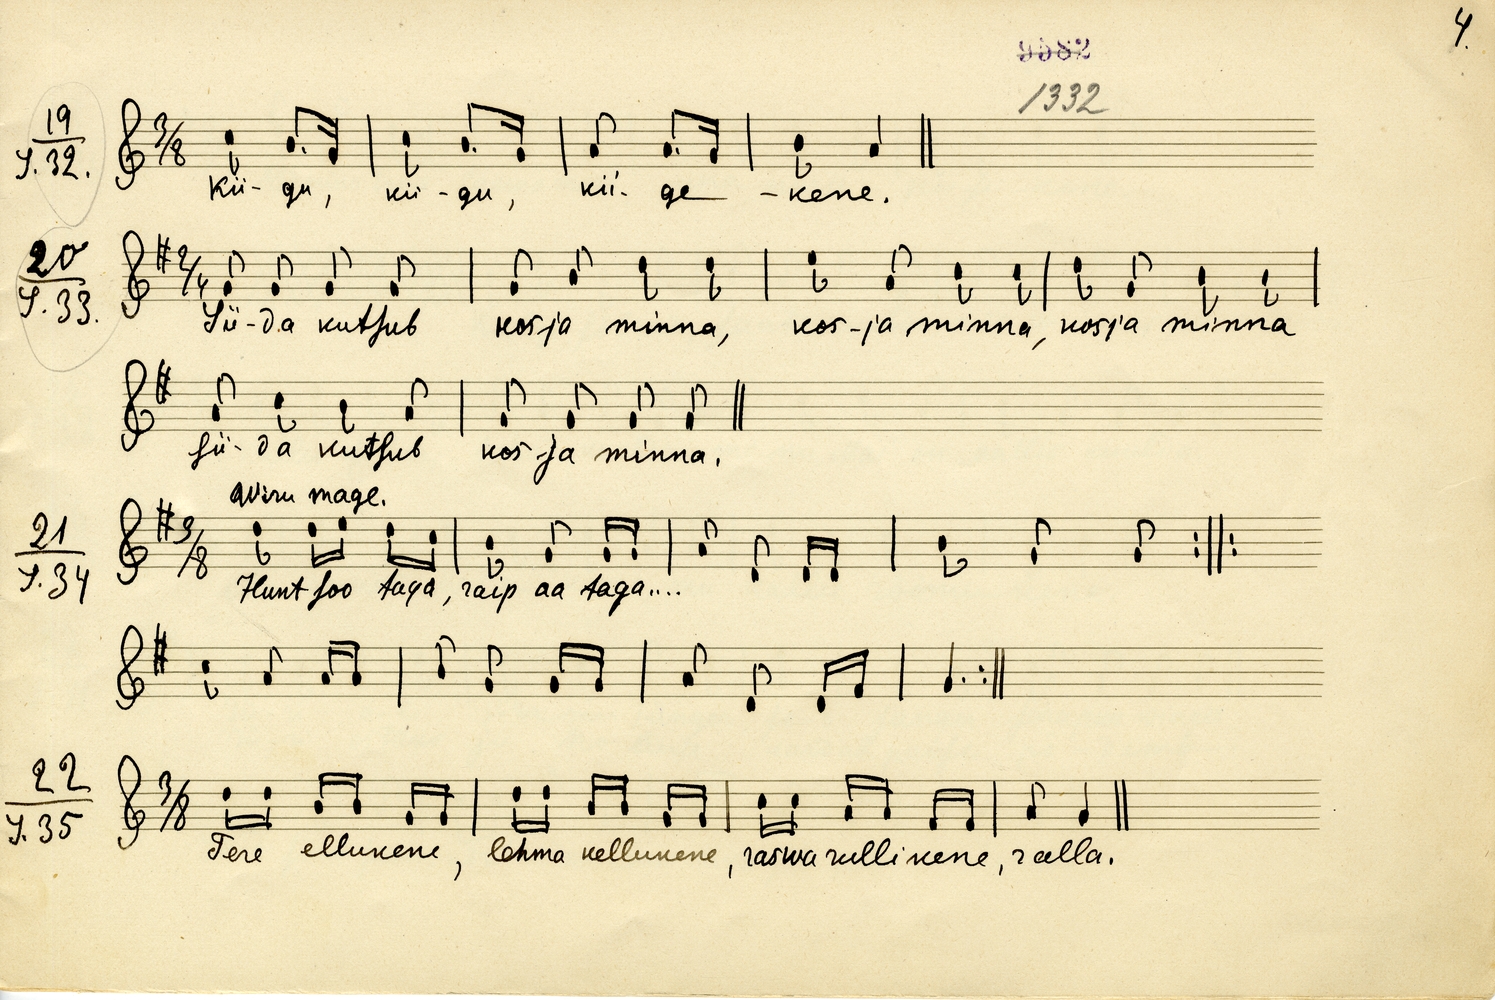 4.
9582
1332
19
S. 32.
3/8
Kii-gu, kii-gu, kii-ge-kene.
20
S. 33.
2/4
Sii-da kutsub kosja minna, kos-ja minna, kosja minna
sii-da kutsub kosja minna.
mage.
21
S. 34
3/8
Hunt soo taga, raip aa taga....
22
S. 35
3/8
Tere ellukene, lehma kellukene, raswa rullikene, ralla.